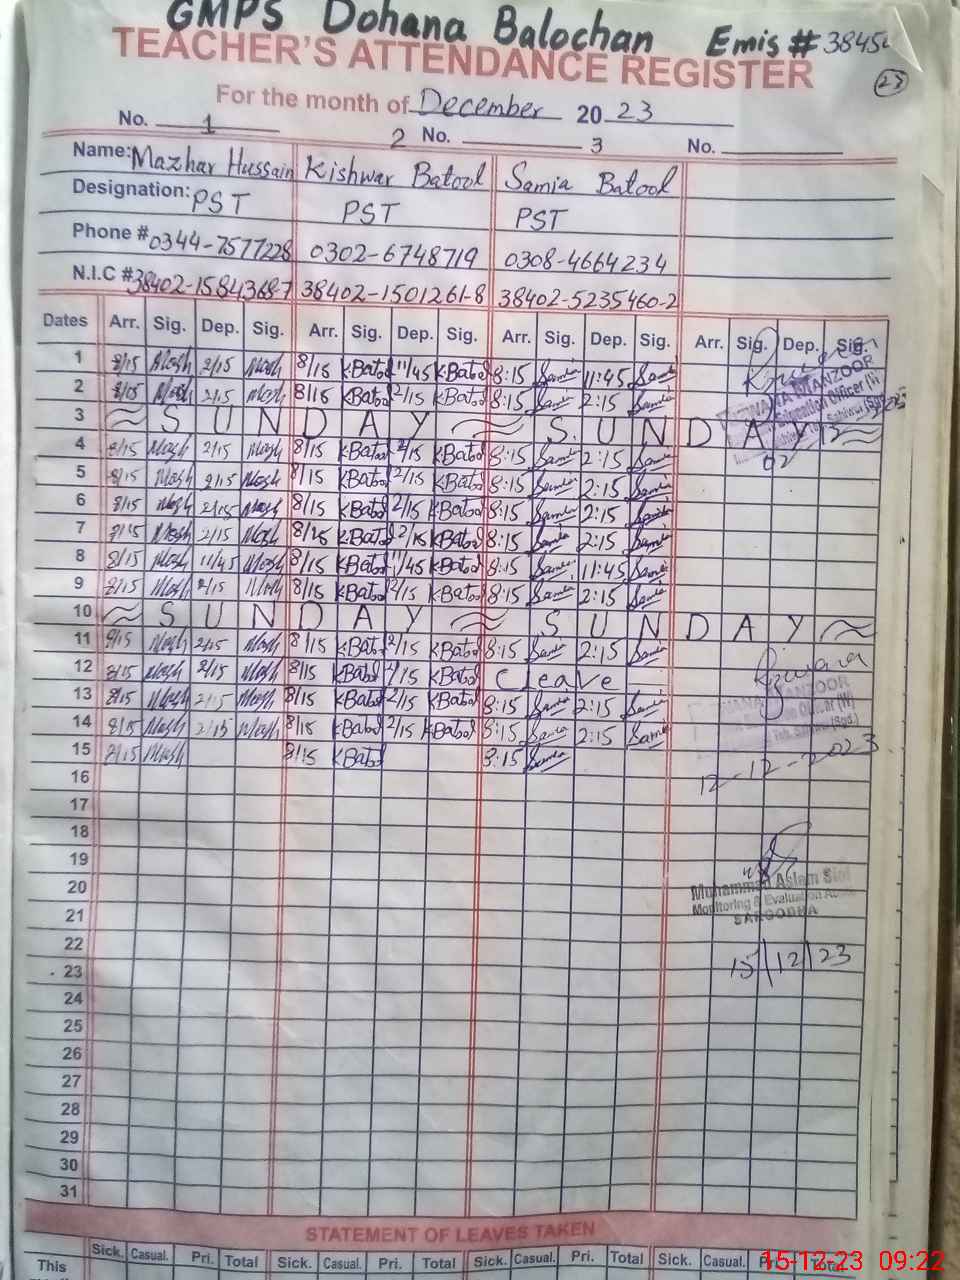 GMPS Dohana Balochan Emis # 3845
TEACHER'S ATTENDANCE REGISTER
28
For the month of December 20 23
No. 1 2 No. 3 No.
Name: Mazhar Hussain Kishwar Batool Samia Batool
Designation: PST PST PST
Phone # 0344-7577228 0302-6748719 0308-4664234
N.I.C # 38402-1584368-7 38402-1501261-8 38402-5235460-2
Dates Arr. Sig. Dep. Sig. Arr. Sig. Dep. Sig. Arr. Sig. Dep. Sig. Arr. Sig. Dep. Sig.
1 8/15 Mazh 2/15 Mazh 8/15 K.Batool 11/45 K.Batool 8:15 Samia 11:45 Samia
2 8/15 Mazh 2/15 Mazh 8/15 K.Batool 2/15 K.Batool 8:15 Samia 2:15 Samia
MANZOOR
3 SUNDAY SUNDAY
02
4 8/15 Mazh 2/15 Mazh 8/15 K.Batool 2/15 K.Batool 8:15 Samia 2:15 Samia
5 8/15 Mazh 2/15 Mazh 8/15 K.Batool 2/15 K.Batool 8:15 Samia 2:15 Samia
6 8/15 Mazh 2/15 Mazh 8/15 K.Batool 2/15 K.Batool 8:15 Samia 2:15 Samia
7 8/15 Mazh 2/15 Mazh 8/15 K.Batool 2/15 K.Batool 8:15 Samia 2:15 Samia
8 8/15 Mazh 11/45 Mazh 8/15 K.Batool 11/45 K.Batool 8:15 Samia 11:45 Samia
9 8/15 Mazh 2/15 Mazh 8/15 K.Batool 2/15 K.Batool 8:15 Samia 2:15 Samia
10 SUNDAY SUNDAY
11 8/15 Mazh 2/15 Mazh 8/15 K.Batool 2/15 K.Batool 8:15 Samia 2:15 Samia
12 8/15 Mazh 2/15 Mazh 8/15 K.Batool 2/15 K.Batool C leave
Rizwana
13 8/15 Mazh 2/15 Mazh 8/15 K.Batool 2/15 K.Batool 8:15 Samia 2:15 Samia
MANZOOR
14 8/15 Mazh 2/15 Mazh 8/15 K.Batool 2/15 K.Batool 8:15 Samia 2:15 Samia
15 8/15 Mazh 8/15 K.Batool 8:15 Samia
12-12-2023
16
17
18
19
20
Muhammad Aslam Sial
Monitoring & Evaluation
21
SARGODHA
22
23
15/12/23
24
25
26
27
28
29
30
31
STATEMENT OF LEAVES TAKEN
Sick. Casual. Pri. Total Sick. Casual. Pri. Total Sick. Casual. Pri. Total Sick. Casual. Pri. Total
This
15-12-23 09:22